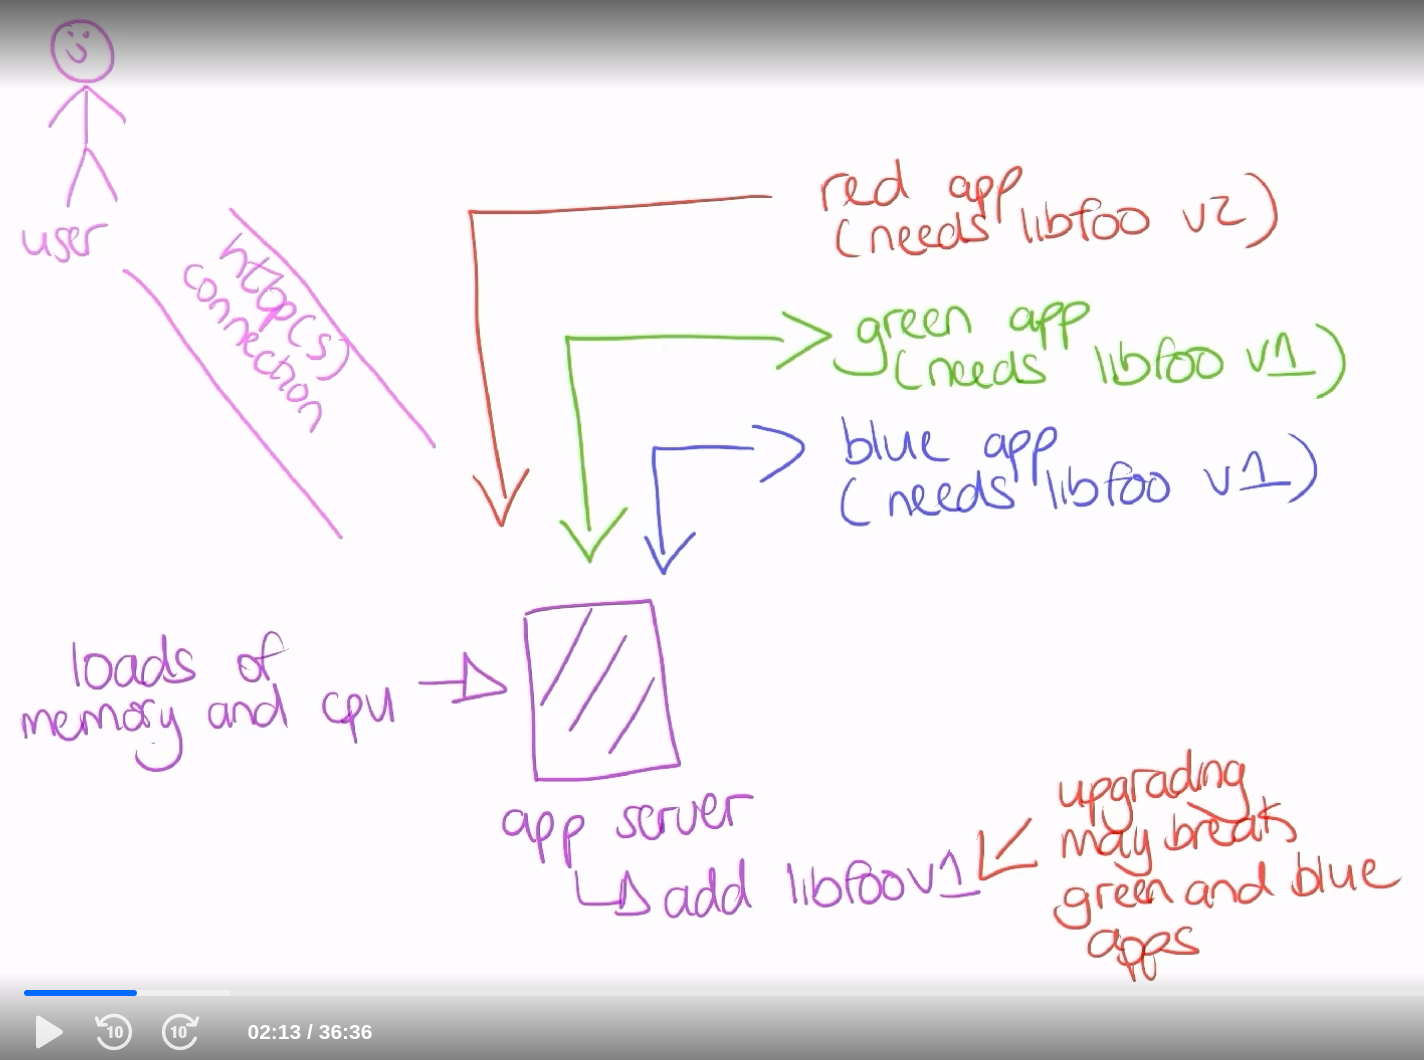 user
http(s)
connection
red app
(needs libfoo v2)
green app
(needs libfoo v1)
blue app
(needs libfoo v1)
loads of
memory and cpu
app server
add libfoo v1
upgrading
may break
green and blue
apps
10
10
02:13 / 36:36